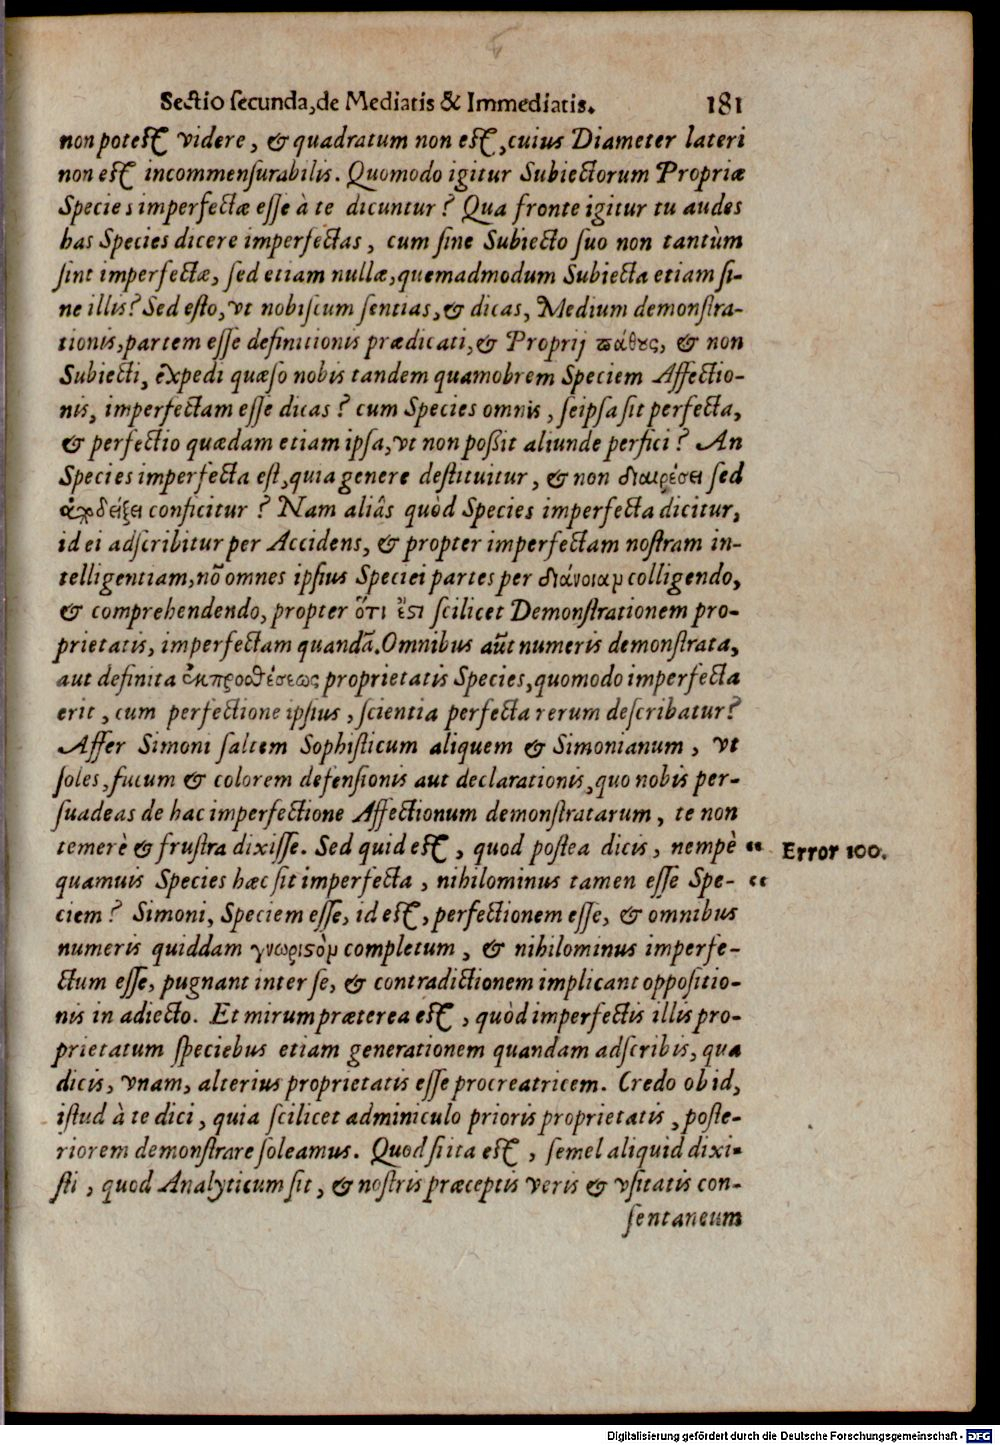 Sectio secunda, de Mediatis & Immediatis. 181
non potest videre, & quadratum non est, cuius Diameter lateri
non est incommensurabilis. Quomodo igitur Subiectorum Propriæ
Species imperfectæ esse à te dicuntur? Qua fronte igitur tu audes
has Species dicere imperfectas, cum sine Subiecto suo non tantùm
sint imperfectæ, sed etiam nullæ, quemadmodum Subiecta etiam si-
ne illis? Sed esto, vt nobiscum sentias, & dicas, Medium demonstra-
tionis, partem esse definitionis prædicati, & Proprij πάθους, & non
Subiecti, expedi quæso nobis tandem quamobrem Speciem Affectio-
nis, imperfectam esse dicas? cum Species omnis, seipsa sit perfecta,
& perfectio quædam etiam ipsa, vt non poßit aliunde perfici? An
Species imperfecta est, quia genere destituitur, & non διαιρέσει sed
ἀποδείξει conficitur? Nam aliâs quòd Species imperfecta dicitur,
id ei adscribitur per Accidens, & propter imperfectam nostram in-
telligentiam, nõ omnes ipsius Speciei partes per διάνοιαν colligendo,
& comprehendendo, propter ὅτι ἔστι scilicet Demonstrationem pro-
prietatis, imperfectam quandã. Omnibus aũt numeris demonstrata,
aut definita ἐκ προσθέσεως proprietatis Species, quomodo imperfecta
erit, cum perfectione ipsius, scientia perfecta rerum describatur?
Affer Simoni saltem Sophisticum aliquem & Simonianum, vt
soles, fucum & colorem defensionis aut declarationis, quo nobis per-
suadeas de hac imperfectione Affectionum demonstratarum, te non
temerè & frustra dixisse. Sed quid est, quod postea dicis, nempè “ Error 100.
quamuis Species hæc sit imperfecta, nihilominus tamen esse Spe- “
ciem? Simoni, Speciem esse, id est, perfectionem esse, & omnibus
numeris quiddam γνωριστὸν completum, & nihilominus imperfe-
ctum esse, pugnant inter se, & contradictionem implicant oppositio-
nis in adiecto. Et mirum præterea est, quòd imperfectis illis pro-
prietatum speciebus etiam generationem quandam adscribis, qua
dicis, vnam, alterius proprietatis esse procreatricem. Credo ob id,
istud à te dici, quia scilicet adminiculo prioris proprietatis, poste-
riorem demonstrare soleamus. Quod si ita est, semel aliquid dixi-
sti, quod Analyticum sit, & nostris præceptis veris & vsitatis con-
sentaneum
Digitalisierung gefördert durch die Deutsche Forschungsgemeinschaft - DFG